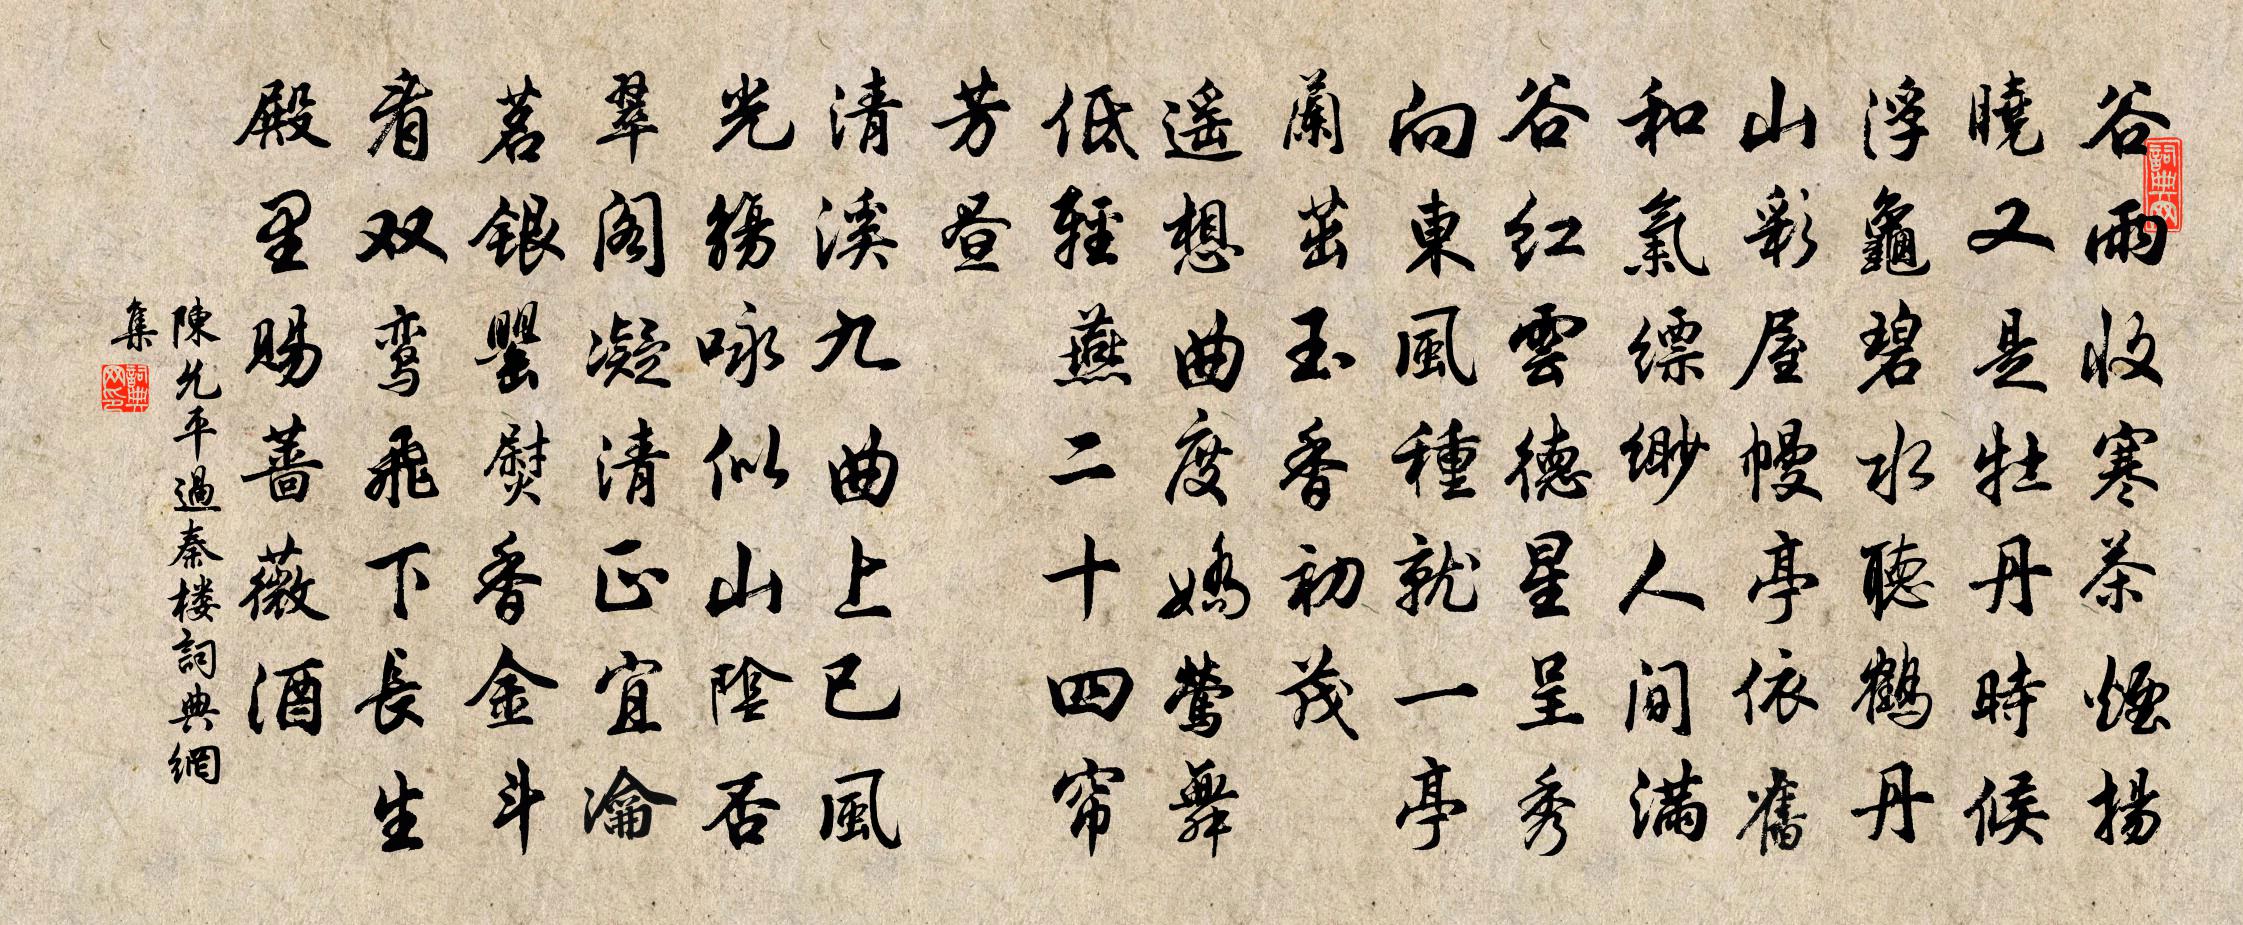 谷雨收寒茶煙揚
曉又是牡丹時候
浮龜碧水聽鶴丹
山彩屋幔亭依舊
和氣縹緲人间滿
谷红雲德星呈秀
向東風種就一亭
蘭茁玉香初茂
遥想曲度嬌鶯舞
低輕燕二十四帘
芳昼
清溪九曲上巳風
光觴咏似山陰否
翠阁凝清正宜瀹
茗銀罌熨香金斗
看双鸾飛下長生
殿里赐蔷薇酒
陳允平過秦楼詞典網
集
詞典网
詞典网印